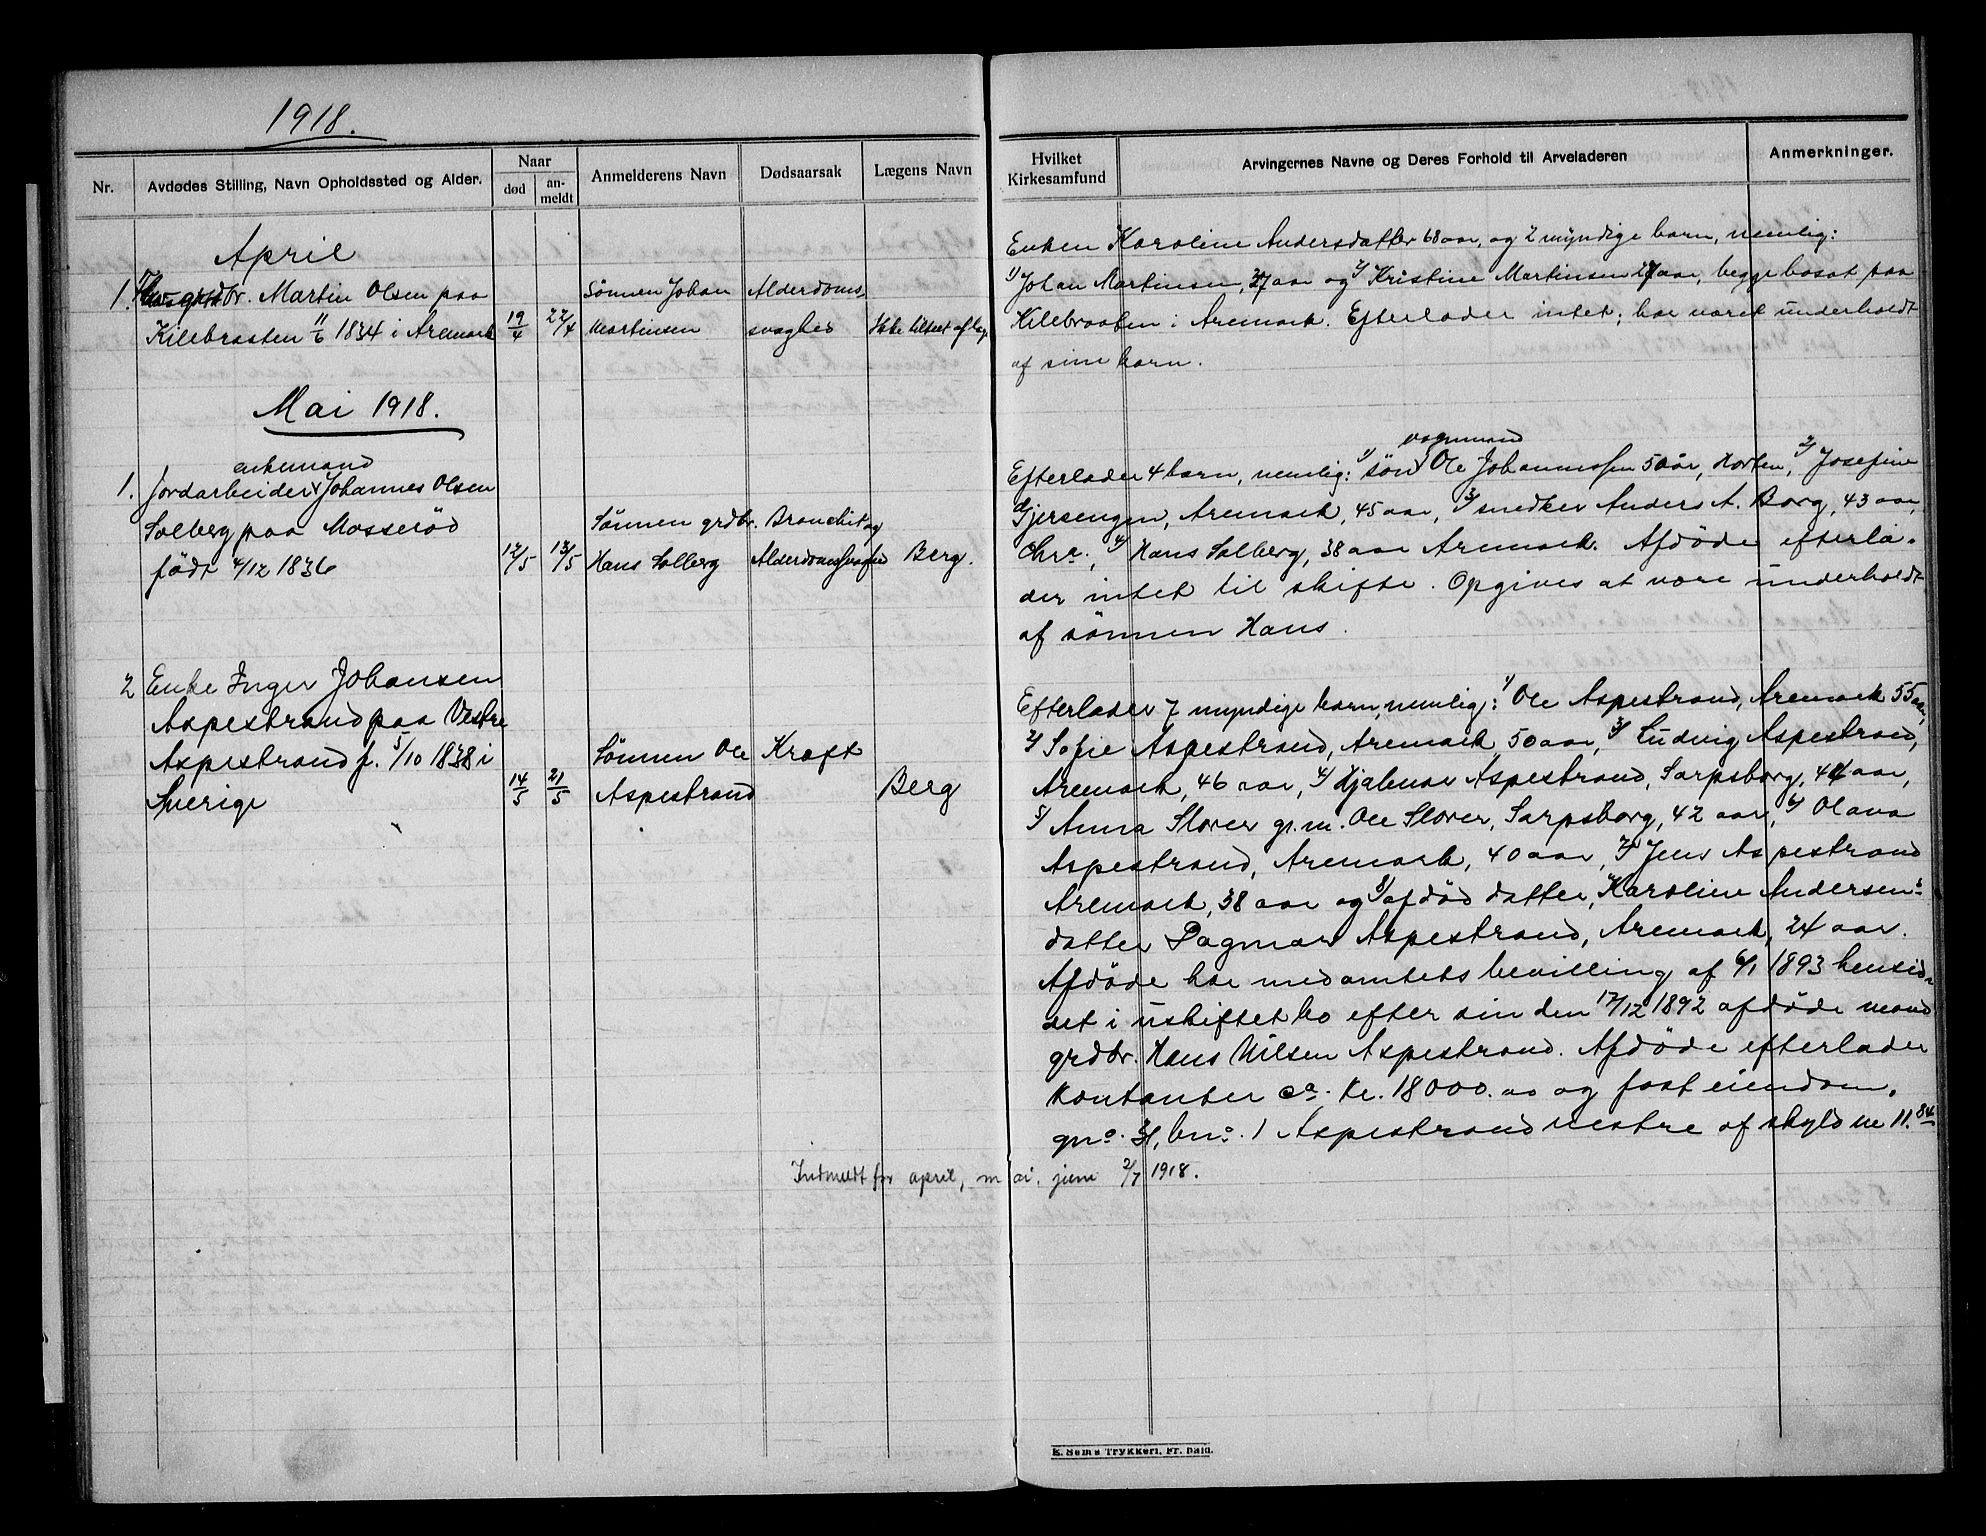 1918.
Nr.
Avdødes Stilling, Navn Opholdssted og Alder.
Naar
død
an-
meldt
Anmelderens Navn
Dødsaarsak
Lægens Navn
Hvilket
Kirkesamfund
Arvingernes Navne og Deres Forhold til Arveladeren
Anmerkninger.
April
1. grdbr. Martin Olsen paa
Kilebraaten 11/6 1834 i Aremark
19/4
22/4
Sönnen Johan
Martinsen
Alderdoms-
svaghed
Ikke tilseet af læge
Enken Karoline Andersdatter 68 aar, og 2 myndige barn, nemlig:
1/ Johan Martinsen, 37 aar og 2/ Kristine Martinsen 27 aar, begge bosat paa
Kilebraaten i Aremark. Efterlader intet; har været underholdt
af sine barn.
Mai 1918.
enkemand
1. Jordarbeider Johannes Olsen
Solberg paa Mosserød
født 4/12 1836
12/5
13/5
Sönnen grdbr.
Hans Solberg
Bronchit og
Alderdomssvaghed
Berg.
vognmand
Efterlader 4 barn, nemlig: 1/ søn Ole Johannessen 50 år, Horten, 2/ Josefine
Gjersengen, Aremark, 45 aar, 3/ snedker Anders A. Borg, 43 aar,
Chra., 4/ Hans Solberg, 38 aar Aremark. Afdøde efterla-
der intet til skifte. Opgives at være underholdt
af sönnen Hans.
2 Enke Inger Johansen
Aspestrand paa Vestre
Aspestrand f. 5/10 1838 i
Sverige
14/5
21/5
Sönnen Ole
Aspestrand
Kræft
Berg
Efterlader 7 myndige barn, nemlig: 1/ Ole Aspestrand, Aremark 55 aar,
2/ Sofie Aspestrand, Aremark, 50 aar, 3/ Ludvig Aspestrand,
Aremark, 46 aar, 4/ Hjalmar Aspestrand, Sarpsborg, 44 aar,
5/ Anna Storer g.m. Ole Storer, Sarpsborg, 42 aar, 6/ Olava
Aspestrand, Aremark, 40 aar, 7/ Jens Aspestrand
Aremark, 38 aar og 8/ afdød datter, Karoline Andersens
datter Dagmar Aspestrand, Aremark, 24 aar.
Afdøde har med amtets bevilling af 6/1 1893 hensid-
det i uskiftet bo efter sin den 17/12 1892 afdøde mand
grdbr. Hans Nilsen Aspestrand. Afdøde efterlader
kontanter ca. kr. 18000.00 og fast eiendom,
gno. 31, bno. 1 Aspestrand vestre af skyld m 11.84
Indmeldt for april, mai, juni 2/7 1918.
E. Sems Trykkeri, Fr.hald.